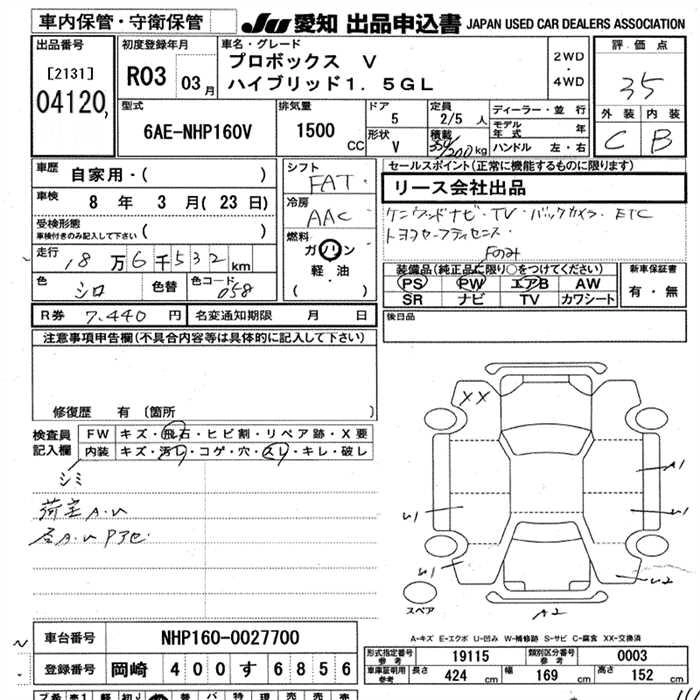 車内保管・守衛保管
JU 愛知 出品申込書 JAPAN USED CAR DEALERS ASSOCIATION
出品番号
[2131]
04120
初度登録年月
R03 03月
車名・グレード
プロボックス V
ハイブリッド1.5GL
2WD
・
4WD
評価点
35
外装 内装
C B
型式
6AE-NHP160V
排気量
1500 CC
ドア
5
形状
V
定員
2/5 人
積載
350/200kg
ディーラー・並行
モデル年式 年
ハンドル 左・右
車歴
自家用・( )
車検
8 年 3 月(23日)
受検形態
車検付きのみ記入して下さい ( )
走行
18万6千532km
色
シロ
色替
色コード
058
シフト
FAT
冷房
AAC
燃料
ガソリン
・
軽油
( )
セールスポイント(正常に機能するものに限ります)
リース会社出品
ケンウッドナビ・TV・バックカメラ・ETC
トヨタセーフティセンス
Fのみ
装備品(純正品に限り○をつけてください)
PS PW エアB AW
SR ナビ TV カワシート
新車保証書
有・無
R券 7,440円
名変通知期限 月 日
後日品
注意事項申告欄(不具合内容等は具体的に記入して下さい)
修復歴 有〔箇所 〕
検査員記入欄
FW キズ・飛石・ヒビ割・リペア跡・X要
内装 キズ・汚レ・コゲ・穴・スレ・キレ・破レ
シミ
荷室A.U
XX
A1
U1
U1
U1
U2
A2
スペア
A-キズ E-エクボ U-凹み W-補修跡 S-サビ C-腐食 XX-交換済
車台番号 NHP160-0027700
登録番号 岡崎 400 す 6856
形式指定番号 参考 19115
類別区分番号 参考 0003
車庫証明用 参考 長さ 424 cm 幅 169 cm 高さ 152 cm